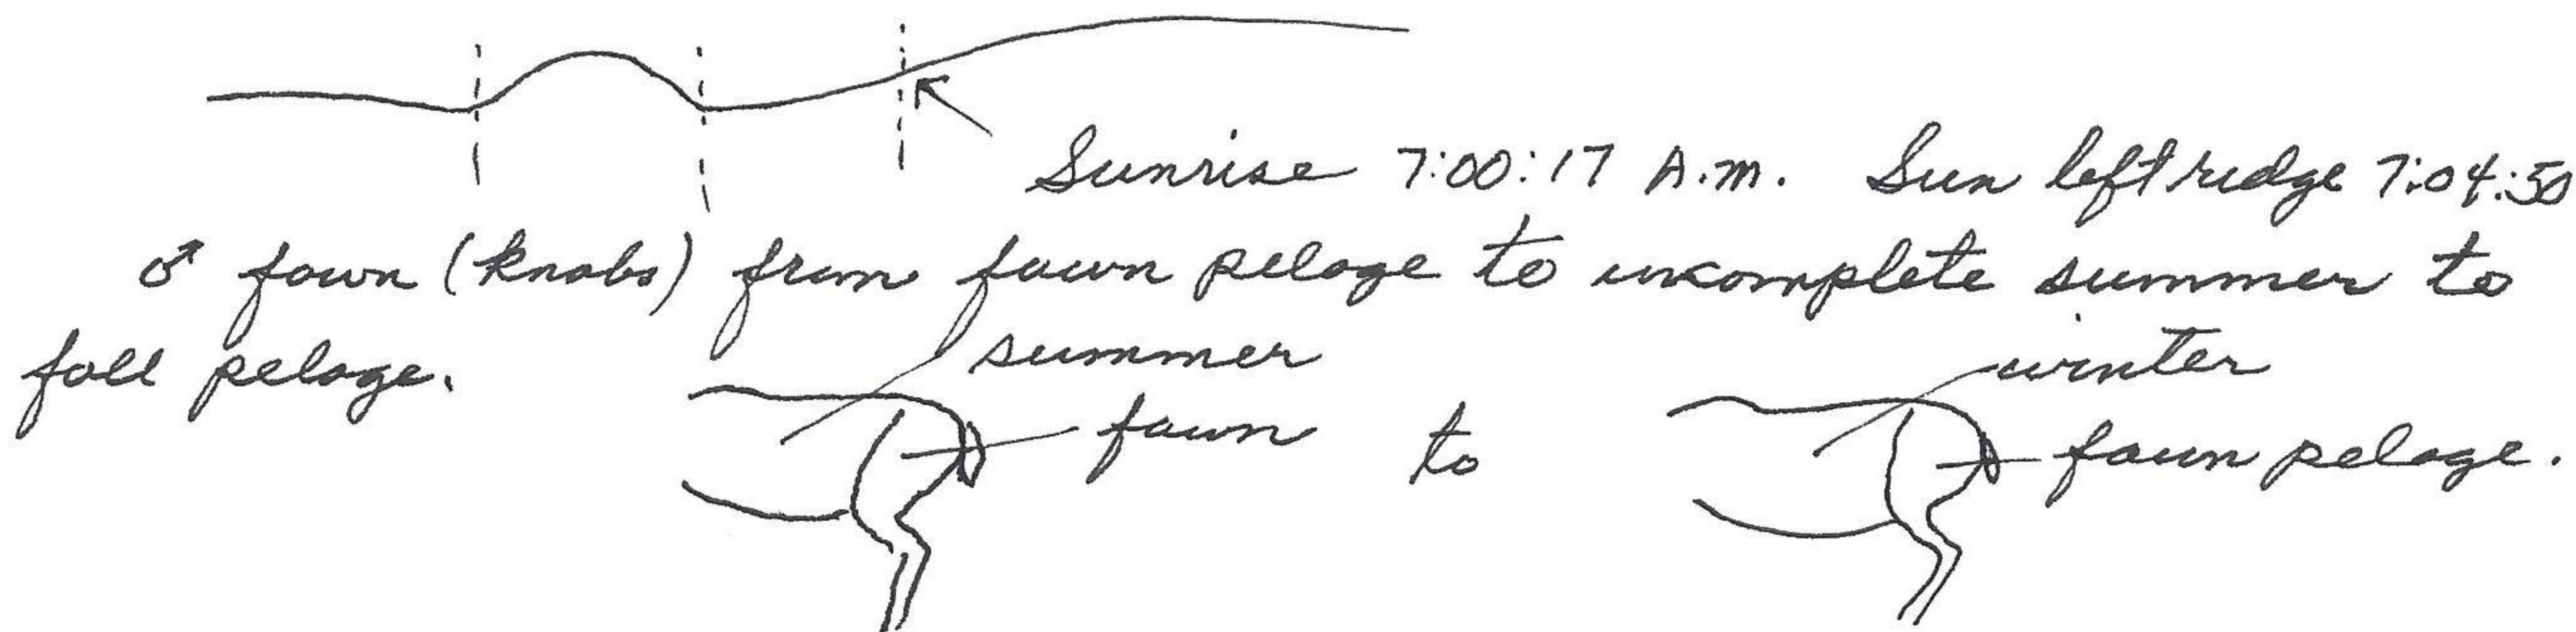 Sunrise 7:00:17 A.M. Sun left ridge 7:04:50
♂ fawn (knobs) from fawn pelage to incomplete summer to
fall pelage.
summer
fawn
to
winter
fawn pelage.